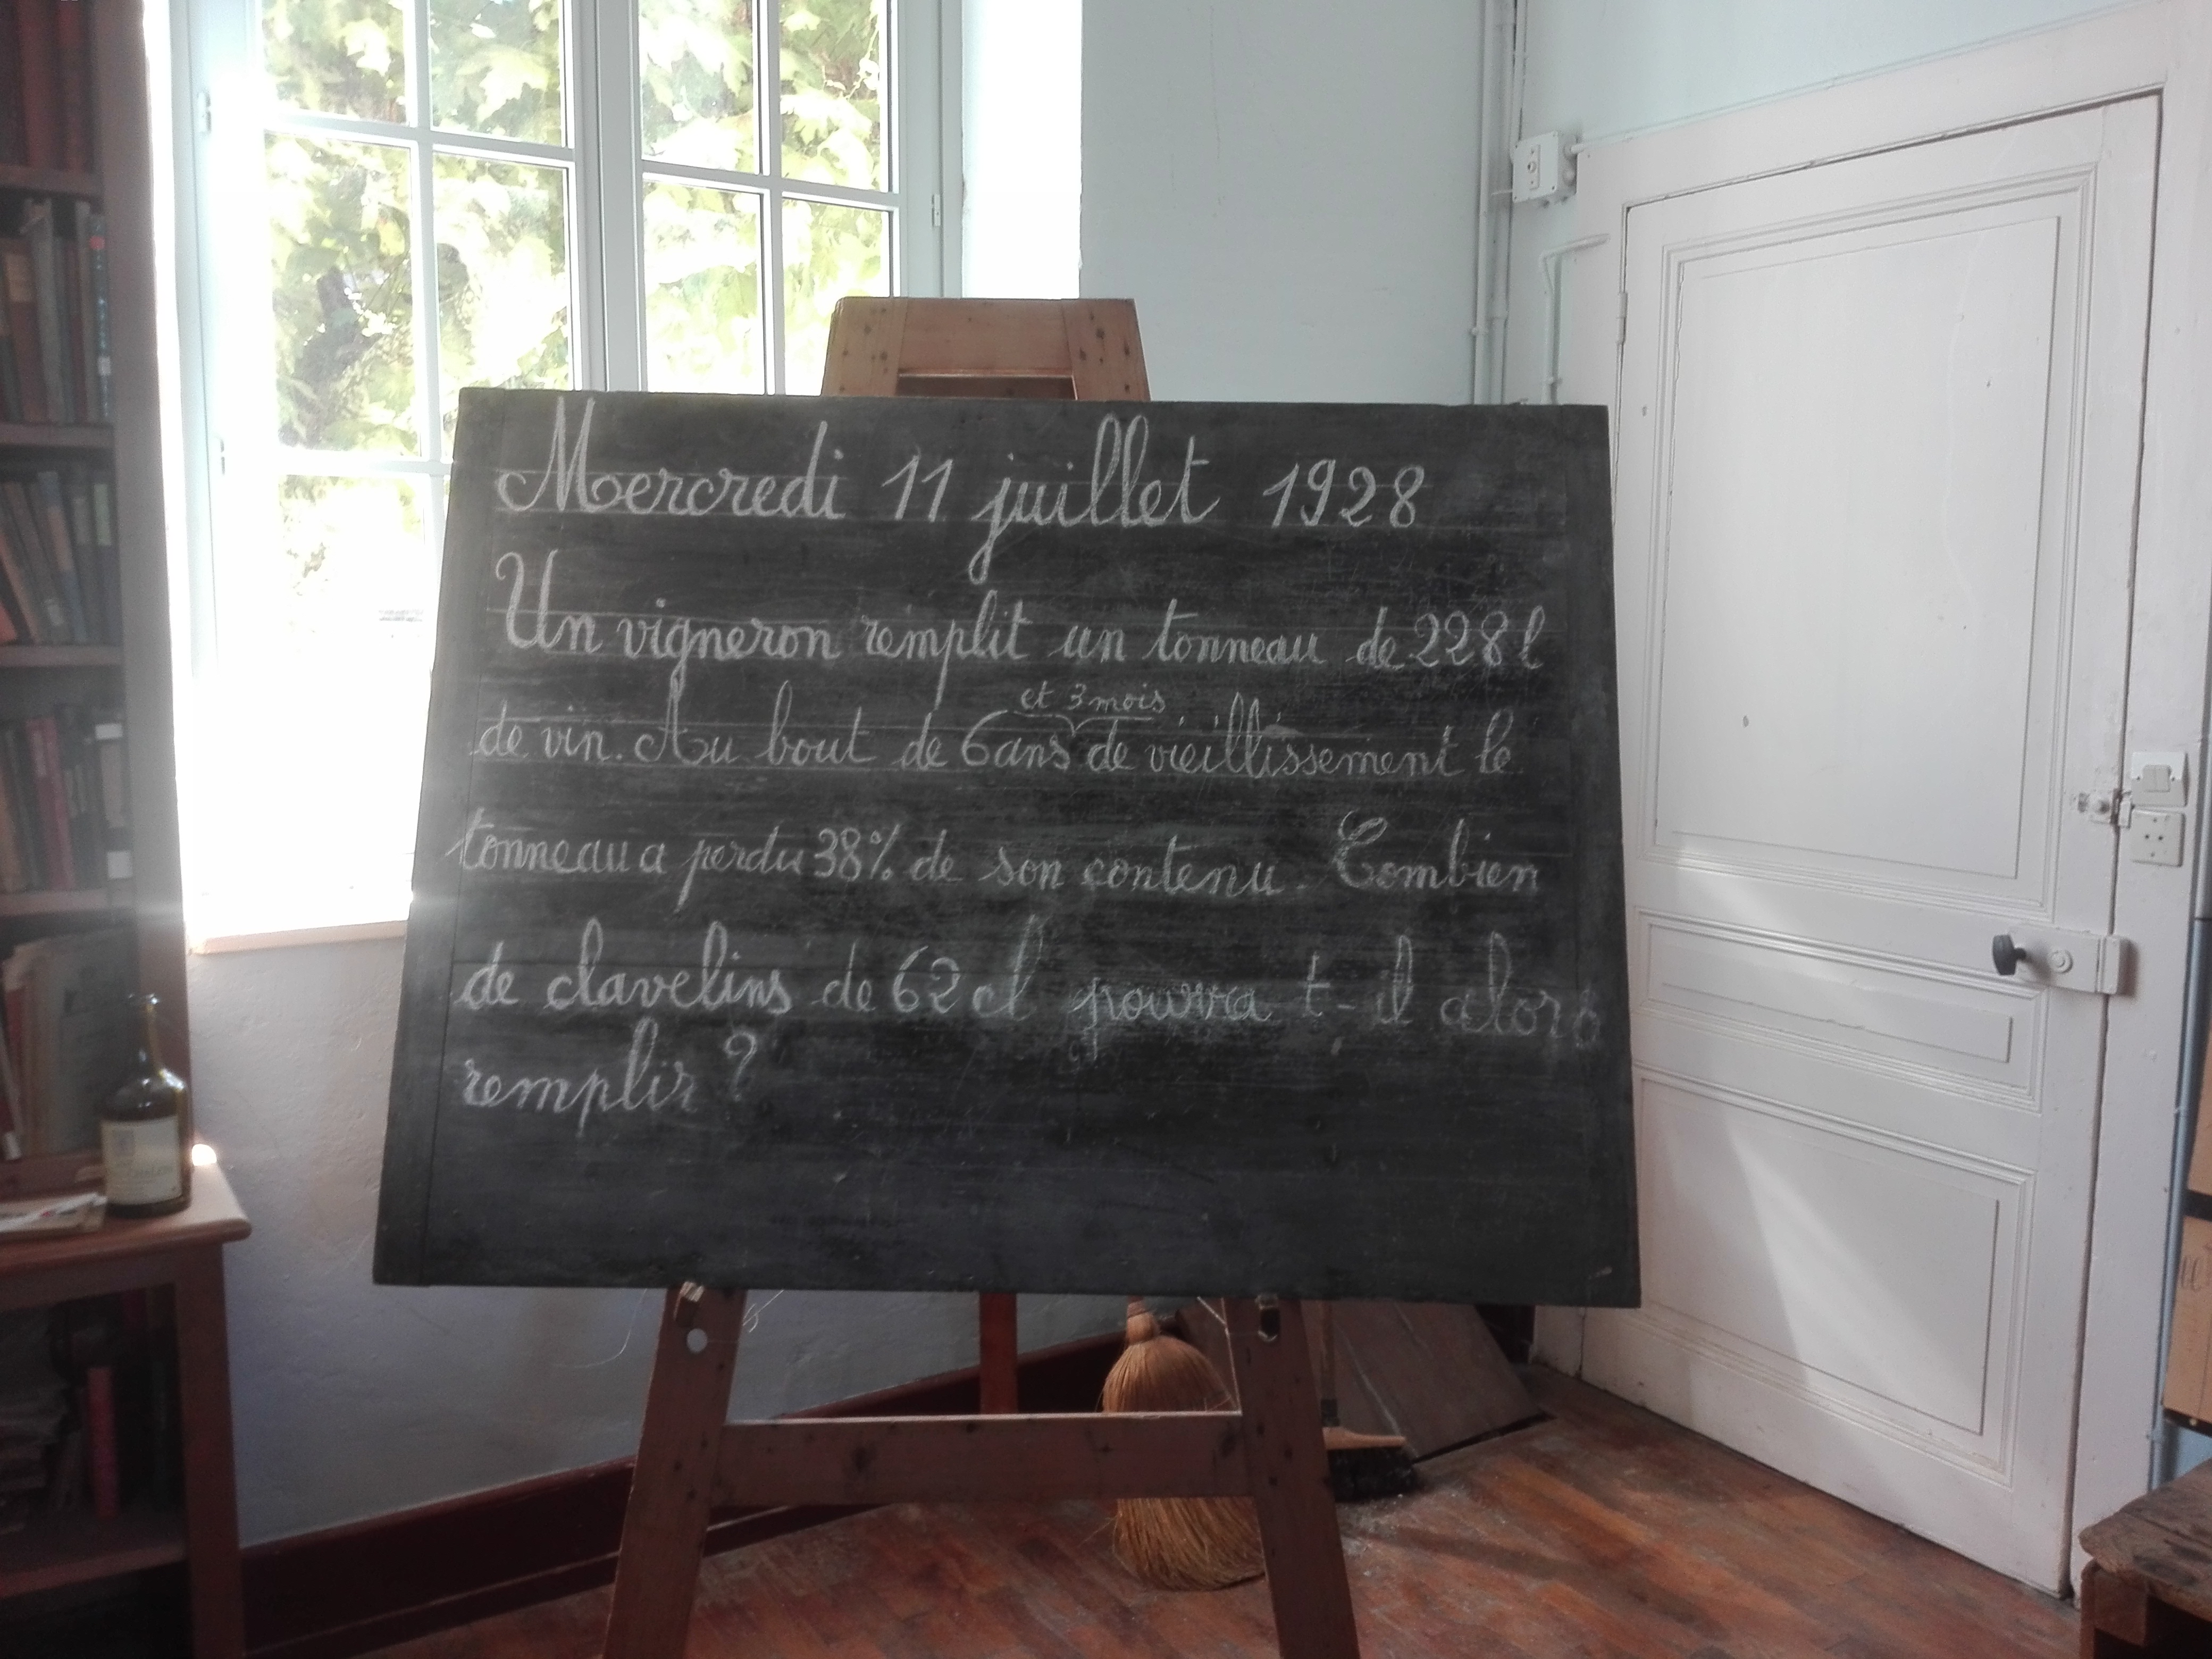 Mercredi 11 juillet 1928
Un vigneron remplit un tonneau de 228 l
et 3 mois
de vin. Au bout de 6 ans de vieillissement le
tonneau a perdu 38% de son contenu. Combien
de clavelins de 62 cl pourra t-il alors
remplir ?